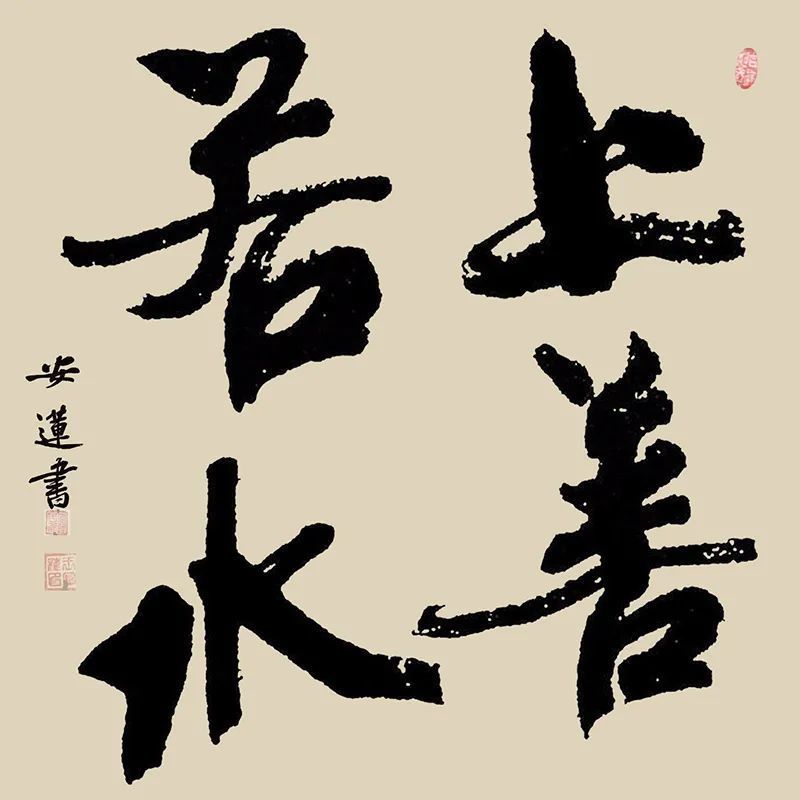 上善
若水
安蓮書